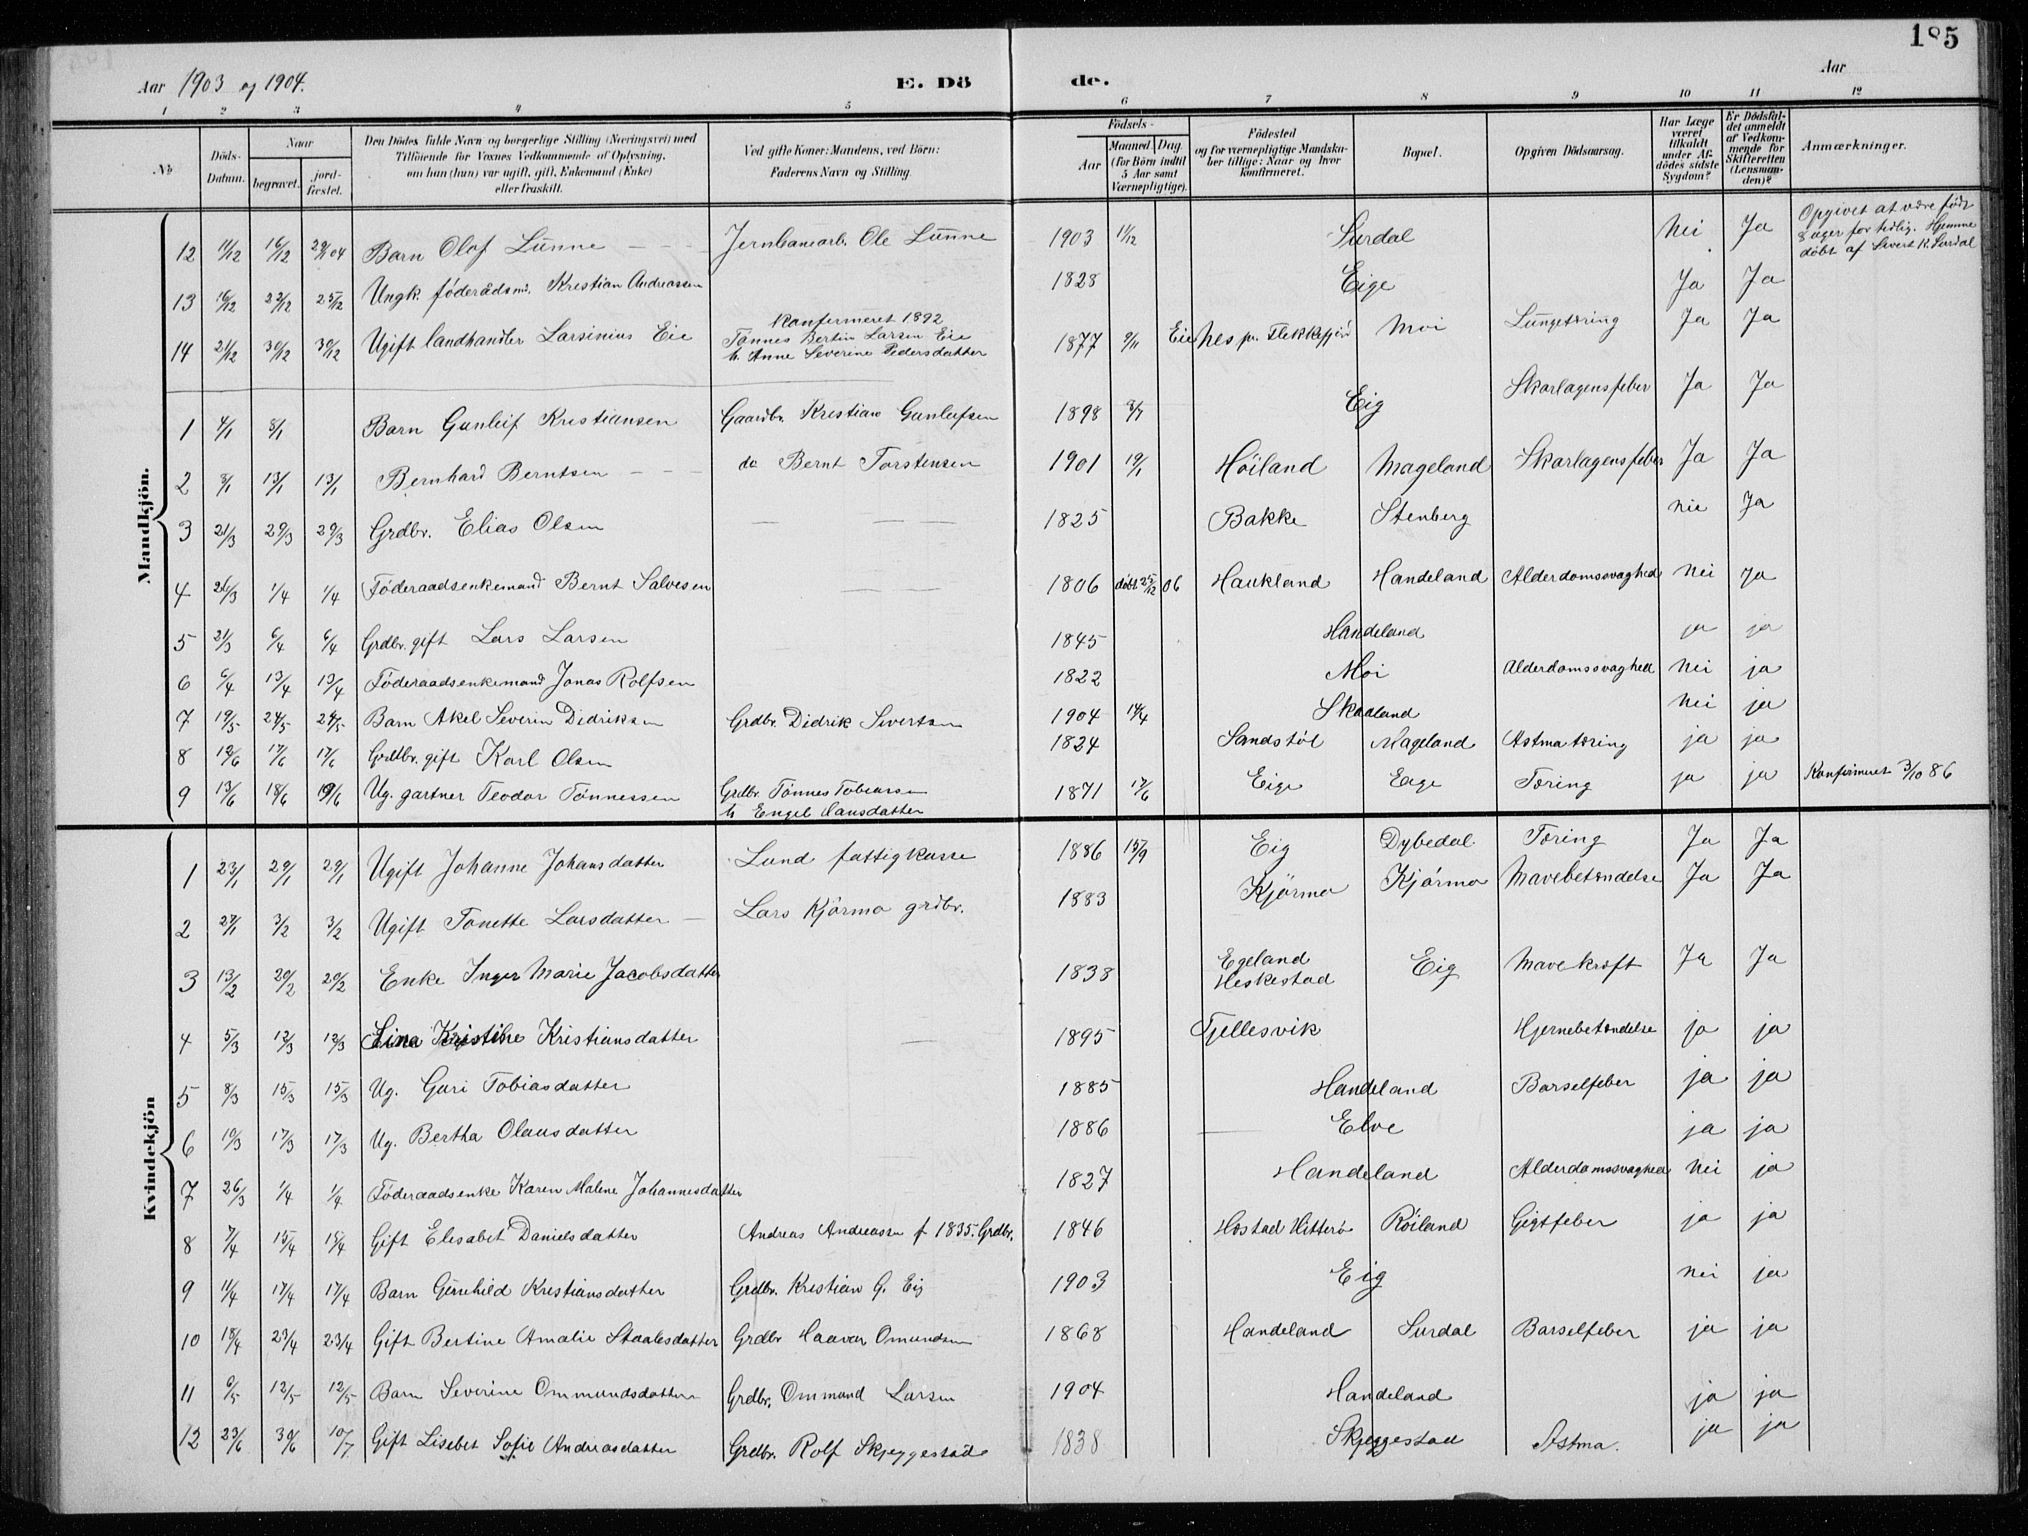 185
Aar 1903 og 1904. E. Dö de. Aar
1 2 3 4 5 6 7 8 9 10 11 12
No
Döds-Datum.
Naar
begravet.
jord-fæstet.
Den Dödes fulde Navn og borgerlige Stilling (Næringsvei) med
Tilföiende for Voxnes Vedkommende af Oplysning,
om han (hun) var ugift, gift, Enkemand (Enke)
eller fraskilt.
Ved gifte Koner: Mandens, ved Börn:
Faderens Navn og Stilling.
Födsels-
Aar
Maaned. Dag.
(for Börn indtil
5 Aar samt
Værnepligtige).
Födested
og for værnepligtige Mandska-
ber tillige: Naar og hvor
konfirmeret.
Bopæl.
Opgiven Dödsaarsag.
Har Læge
været
tilkaldt
under Af-
dödes sidste
Sygdom?
Er Dödsfal-
det anmeldt
af Vedkom-
mende for
Skifteretten
(Lensman-
den)?
Anmærkninger.
Mandkjön.
12 11/12 16/12 29/1 04 Barn Olaf Lunne Jernbanearb. Ole Lunne 1903 11/12 Surdal Nei Ja Opgivet at være født
8 uger for tidlig. Hjemme
døbt af Sivert R. Surdal
13 16/12 22/12 25/12 Ungk. føderaadsmd. Kristian Andreassen 1828 Eige Ja Ja
14 21/12 30/12 30/12 Ugift landhandler Larsinius Eie Konfirmeret 1892
Tønnes Bertin Larsen Eie
h. Anne Severine Pedersdatter 1877 9/11 Eie Nes pr. Flekkefjord Moi Lungetæring Ja Ja
1 4/1 8/1 Barn Gunleif Kristiansen Gaardbr. Kristian Gunleifsen 1898 8/7 Eig Skarlagensfeber Ja Ja
2 8/1 13/1 13/1 Bernhard Berntsen do Bernt Torstensen 1901 19/1 Høiland Mageland Skarlagensfeber Ja Ja
3 21/3 29/3 29/3 Grdbr. Elias Olsen 1825 Bakke Stenberg nei Ja
4 26/3 1/4 1/4 Føderaadsenkemand Bernt Salvesen 1806 døbt 25/12 06 Haukland Handeland Alderdomssvaghed Nei Ja
5 21/3 6/4 6/4 Grdbr. gift Lars Larsen 1845 Handeland ja ja
6 6/4 13/4 13/4 Føderaadsenkemand Jonas Rolfsen 1822 Moi Alderdomssvaghed Nei ja
7 19/5 24/5 24/5 Barn Aksel Severin Didriksen Grdbr. Didrik Sivertsen 1904 14/4 Skaaland Nei ja
8 12/6 17/6 17/6 Grdbr. gift Karl Olsen 1824 Sandstøl Mageland Astma tæring ja ja
9 13/6 18/6 19/6 Ug. gartner Teodor Tønnessen Grdbr. Tønnes Tobiassen
h. Engel Clausdatter 1871 17/6 Eige Eige Tæring ja ja Konfirmeret 3/10 86
Kvindekjön
1 23/1 29/1 29/1 Ugift Johanne Johansdatter Lund fattigkasse 1886 15/9 Eig Dybedal Tæring Ja Ja
2 27/1 3/2 3/2 Ugift Tonette Larsdatter Lars Kjørmo grdbr. 1883 Kjørmo Kjørmo Mavebetændelse Ja Ja
3 13/2 20/2 20/2 Enke Inger Marie Jacobsdatter 1838 Egeland
Heskestad Eig Mavekræft Ja Ja
4 5/3 12/3 12/3 Lina Kristine Kristiansdatter 1895 Fjellesvik Hjernebetændelse ja ja
5 8/3 15/3 15/3 Ug. Guri Tobiasdatter 1885 Handeland Barselfeber ja ja
6 10/3 17/3 17/3 Ug. Bertha Olausdatter 1886 Elve ja ja
7 26/3 1/4 1/4 Føderaadsenke Karen Malene Johannesdatter 1827 Handeland Alderdomssvaghed Nei ja
8 7/4 15/4 15/4 Gift Elisabet Danielsdatter Andreas Andreassen f 1835. Grdbr. 1846 Hæstad Hitterø Røiland Gigtfeber ja ja
9 11/4 17/4 17/4 Barn Gunhild Kristiansdatter Grdbr. Kristian G. Eig 1903 Eig Nei ja
10 18/4 23/4 23/4 Gift Bertine Amalie Staalesdatter Grdbr Haavar Omundsen 1868 Handeland Surdal Barselfeber ja ja
11 6/5 12/5 12/5 Barn Severine Ommundsdatter Grdbr. Ommund Larsen 1904 Handeland ja ja
12 23/6 30/6 10/7 Gift Lisebet Sofie Andreasdatter Grdbr. Rolf Skjeggestade 1838 Skjeggestad Astma. ja ja